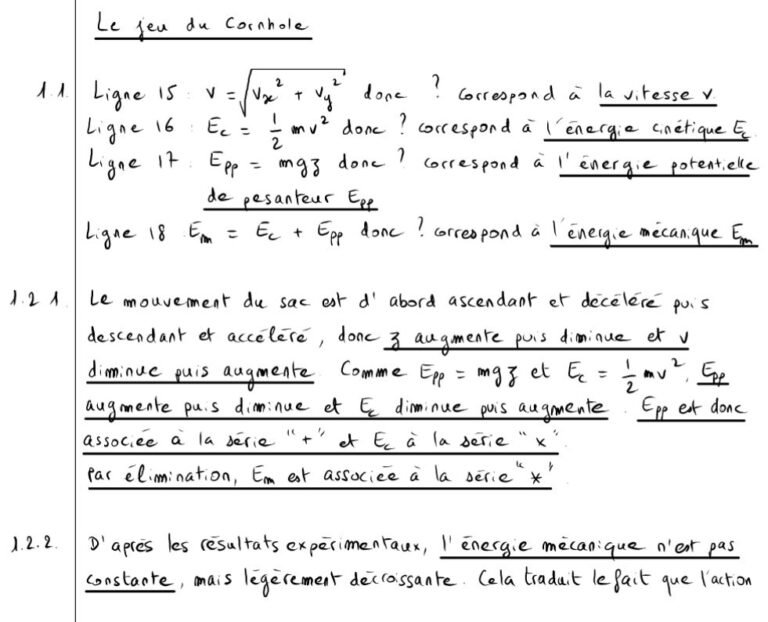 Le jeu du Cornhole
1.1. Ligne 15 : v = √(vx² + vy²) donc ? correspond à la vitesse v.
Ligne 16 : Ec = 1/2 mv² donc ? correspond à l'énergie cinétique Ec
Ligne 17 : Epp = mgz donc ? correspond à l'énergie potentielle
de pesanteur Epp
Ligne 18 Em = Ec + Epp donc ? correspond à l'énergie mécanique Em
1.2.1. Le mouvement du sac est d'abord ascendant et décéléré puis
descendant et accéléré, donc z augmente puis diminue et v
diminue puis augmente. Comme Epp = mgz et Ec = 1/2 mv², Epp
augmente puis diminue et Ec diminue puis augmente. Epp est donc
associée à la série "+" et Ec à la série "x".
Par élimination, Em est associée à la série "*"
1.2.2. D'après les résultats expérimentaux, l'énergie mécanique n'est pas
constante, mais légèrement décroissante. Cela traduit le fait que l'action